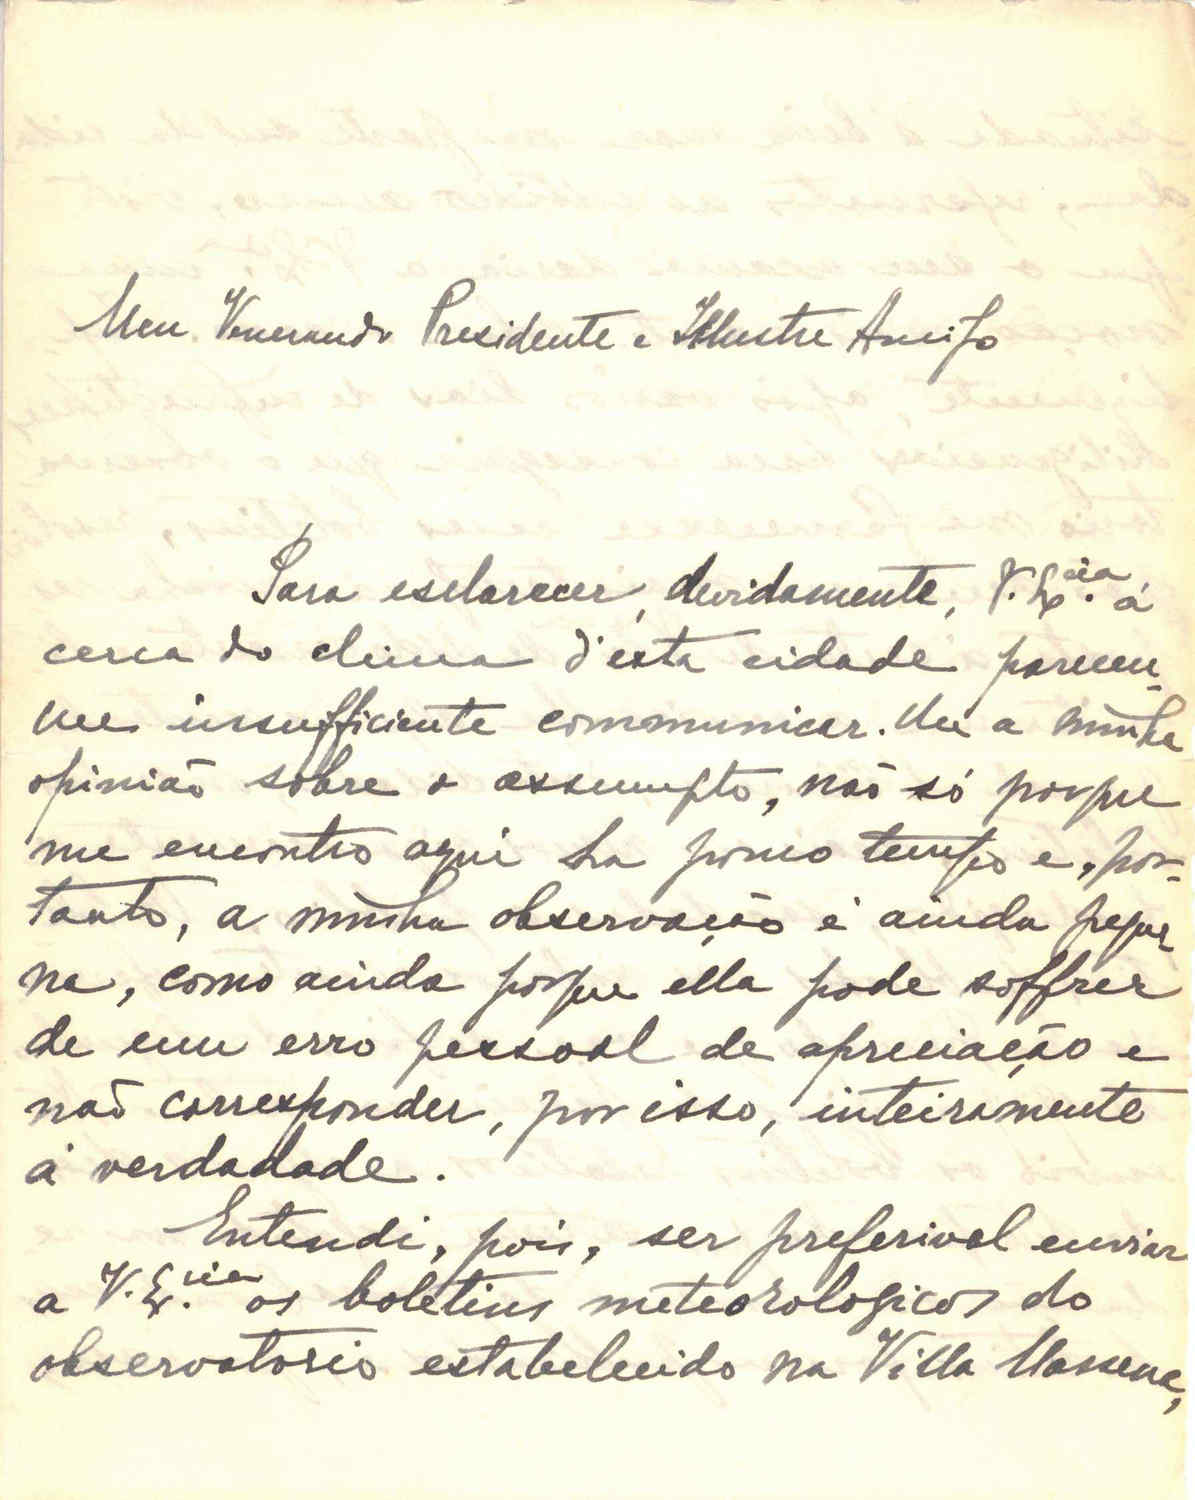 Meu Venerando Presidente e Illustre Amigo
Para esclarecer, devidamente, V. Ex.cia á
cerca do clima d'esta cidade pareceu-
me insufficiente communicar-lhe a minha
opinião sobre o assumpto, não só porque
me encontro aqui ha pouco tempo e, por-
tanto, a minha observação é ainda peque
na, como ainda porque ella pode soffrer
de um erro pessoal de apreciação e
não corresponder, por isso, inteiramente
á verdadade.
Entendi, pois, ser preferivel enviar
a V. Ex.cia os boletins meteorologicos do
observatorio estabelecido na Villa Massena,